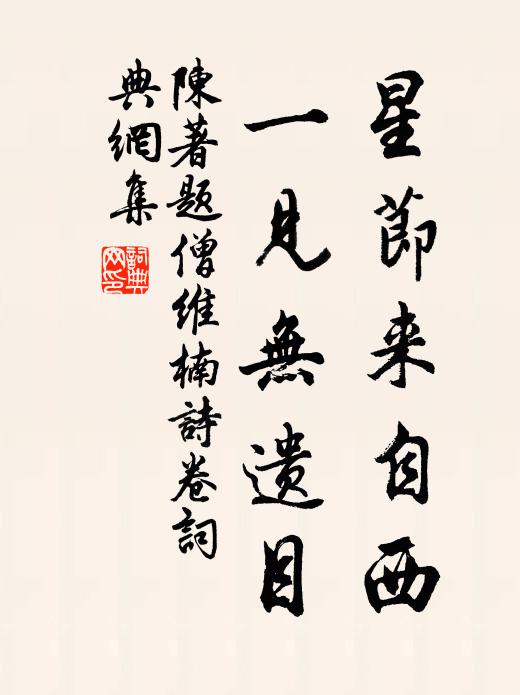 星節来自西
一見無遺目
陳著題僧維楠詩卷詞
典網集
詞典網印